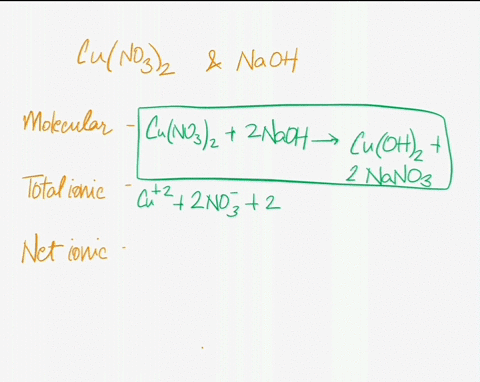 Cu(NO₃)₂ & NaOH
Molecular - Cu(NO₃)₂ + 2NaOH → Cu(OH)₂ +
2 NaNO₃
Total ionic - Cu⁺² + 2NO₃⁻ + 2
Net ionic -